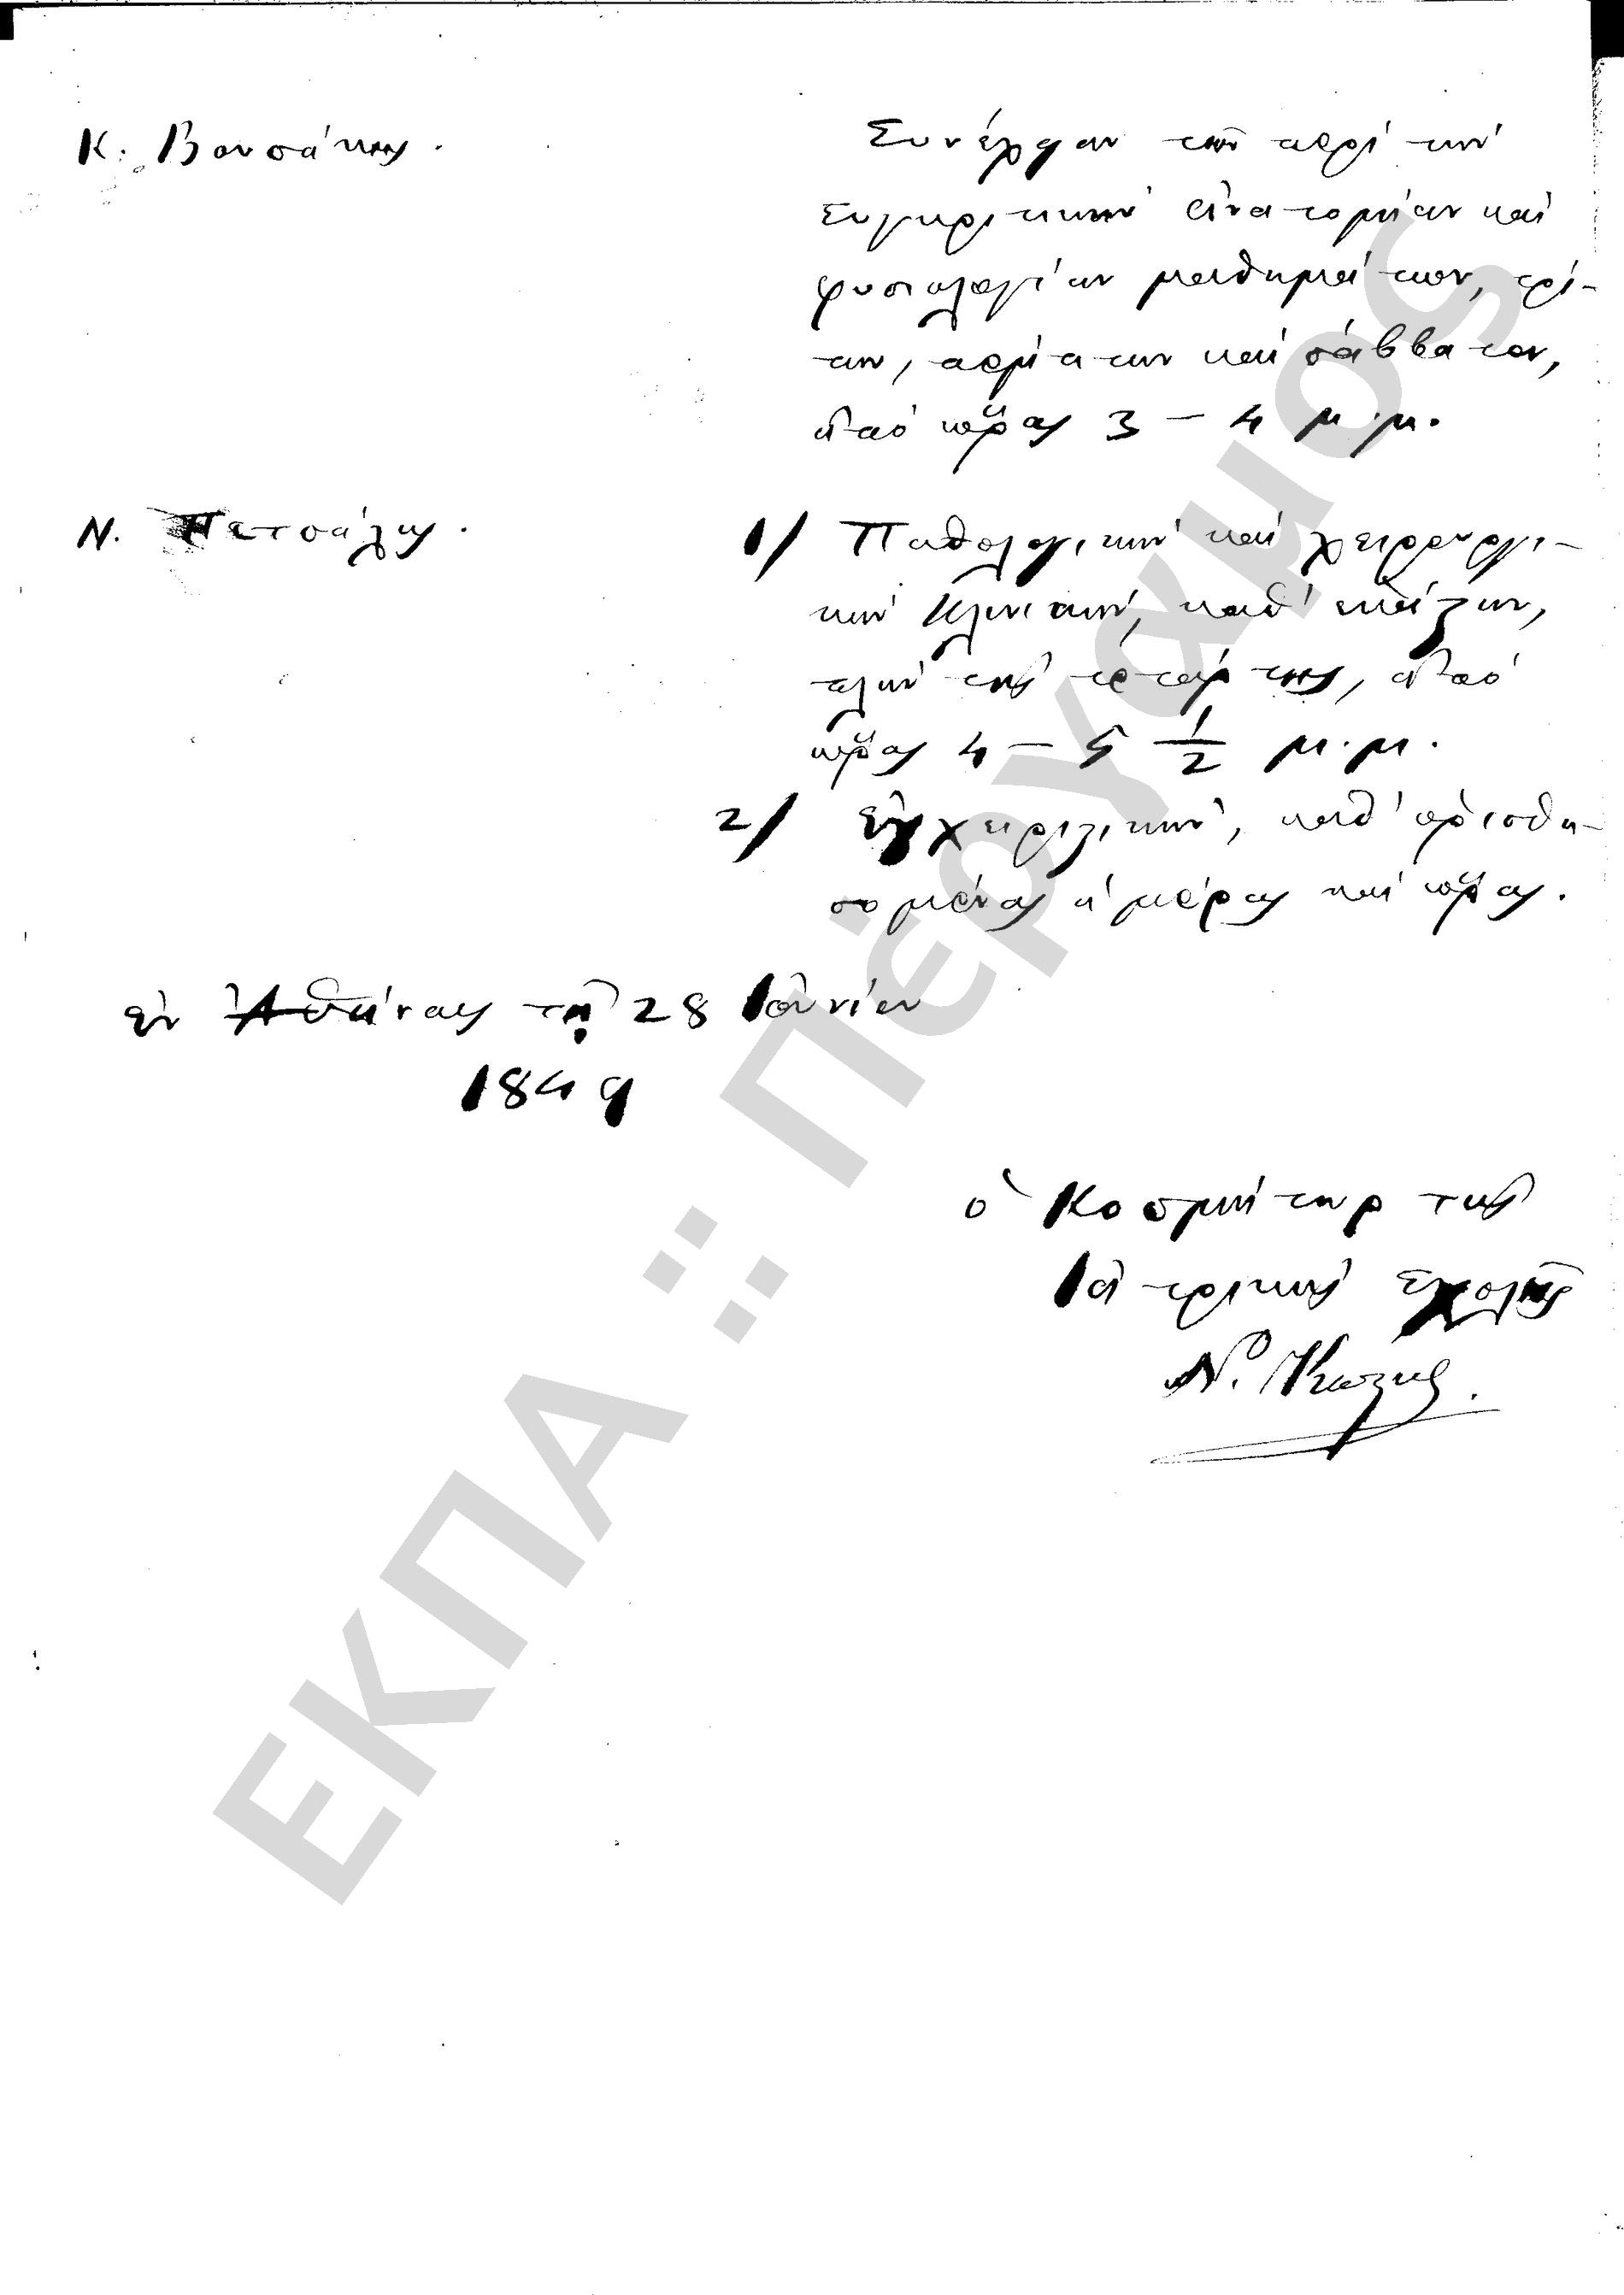 Κ. Βουσάκης.
Συνέχειαν τῶν περί τήν
Συγκριτικήν ἀνατομίαν καί
φυσιολογίαν μαθημάτων, τρί-
την, πέμπτην καί σάββατον,
ἀπό ὥρας 3 – 4 μ.μ.
Ν. Πετσάλης.
1/ Παθολογικήν καί χειρουργι-
κήν Κλινικήν, καθ' ἑκάστην,
πλήν τῆς τετάρτης, ἀπό
ὥρας 4 – 5 1/2 μ.μ.
2/ Ἐγχειριστικήν, καθ' ὁρισθη-
σομένας ἡμέρας καί ὥρας.
ἐν Ἀθήναις τῇ 28 Ἰουνίου
1849
ὁ Κοσμήτωρ τῆς
Ἰατρικῆς Σχολῆς
Ν. Κωστής.
ΕΚΠΑ :: Πέργαμος